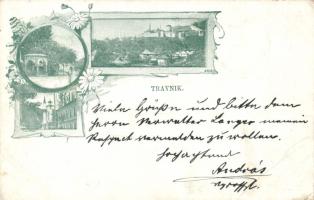 TRAVNIK.
Viele Grüße und bitte dem
Herrn Verwalter Langer meinen
Respect vermelden zu wollen.
Hochachtend
András